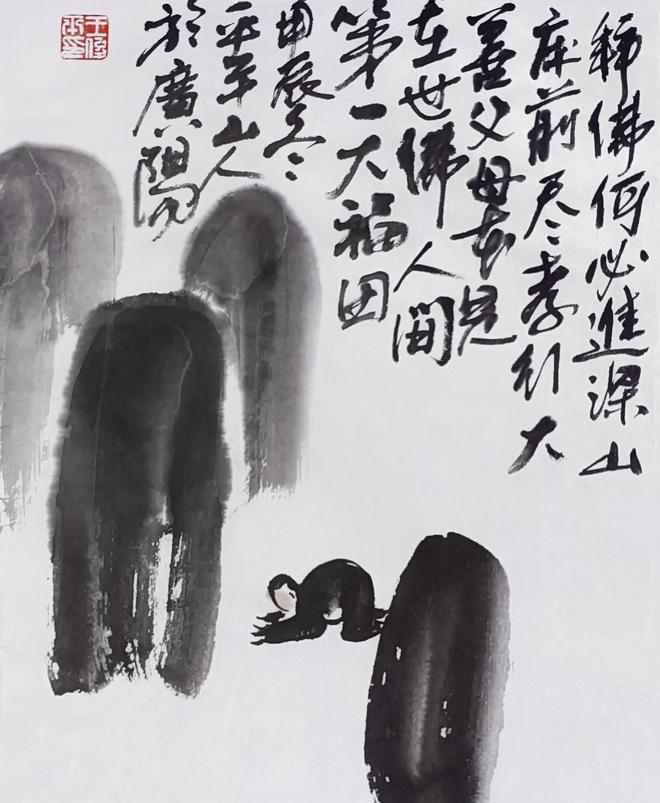 拜佛何必進深山
床前尽孝行大
善父母本是
在世佛人間
第一大福田
甲辰冬
平山人
於廣陽